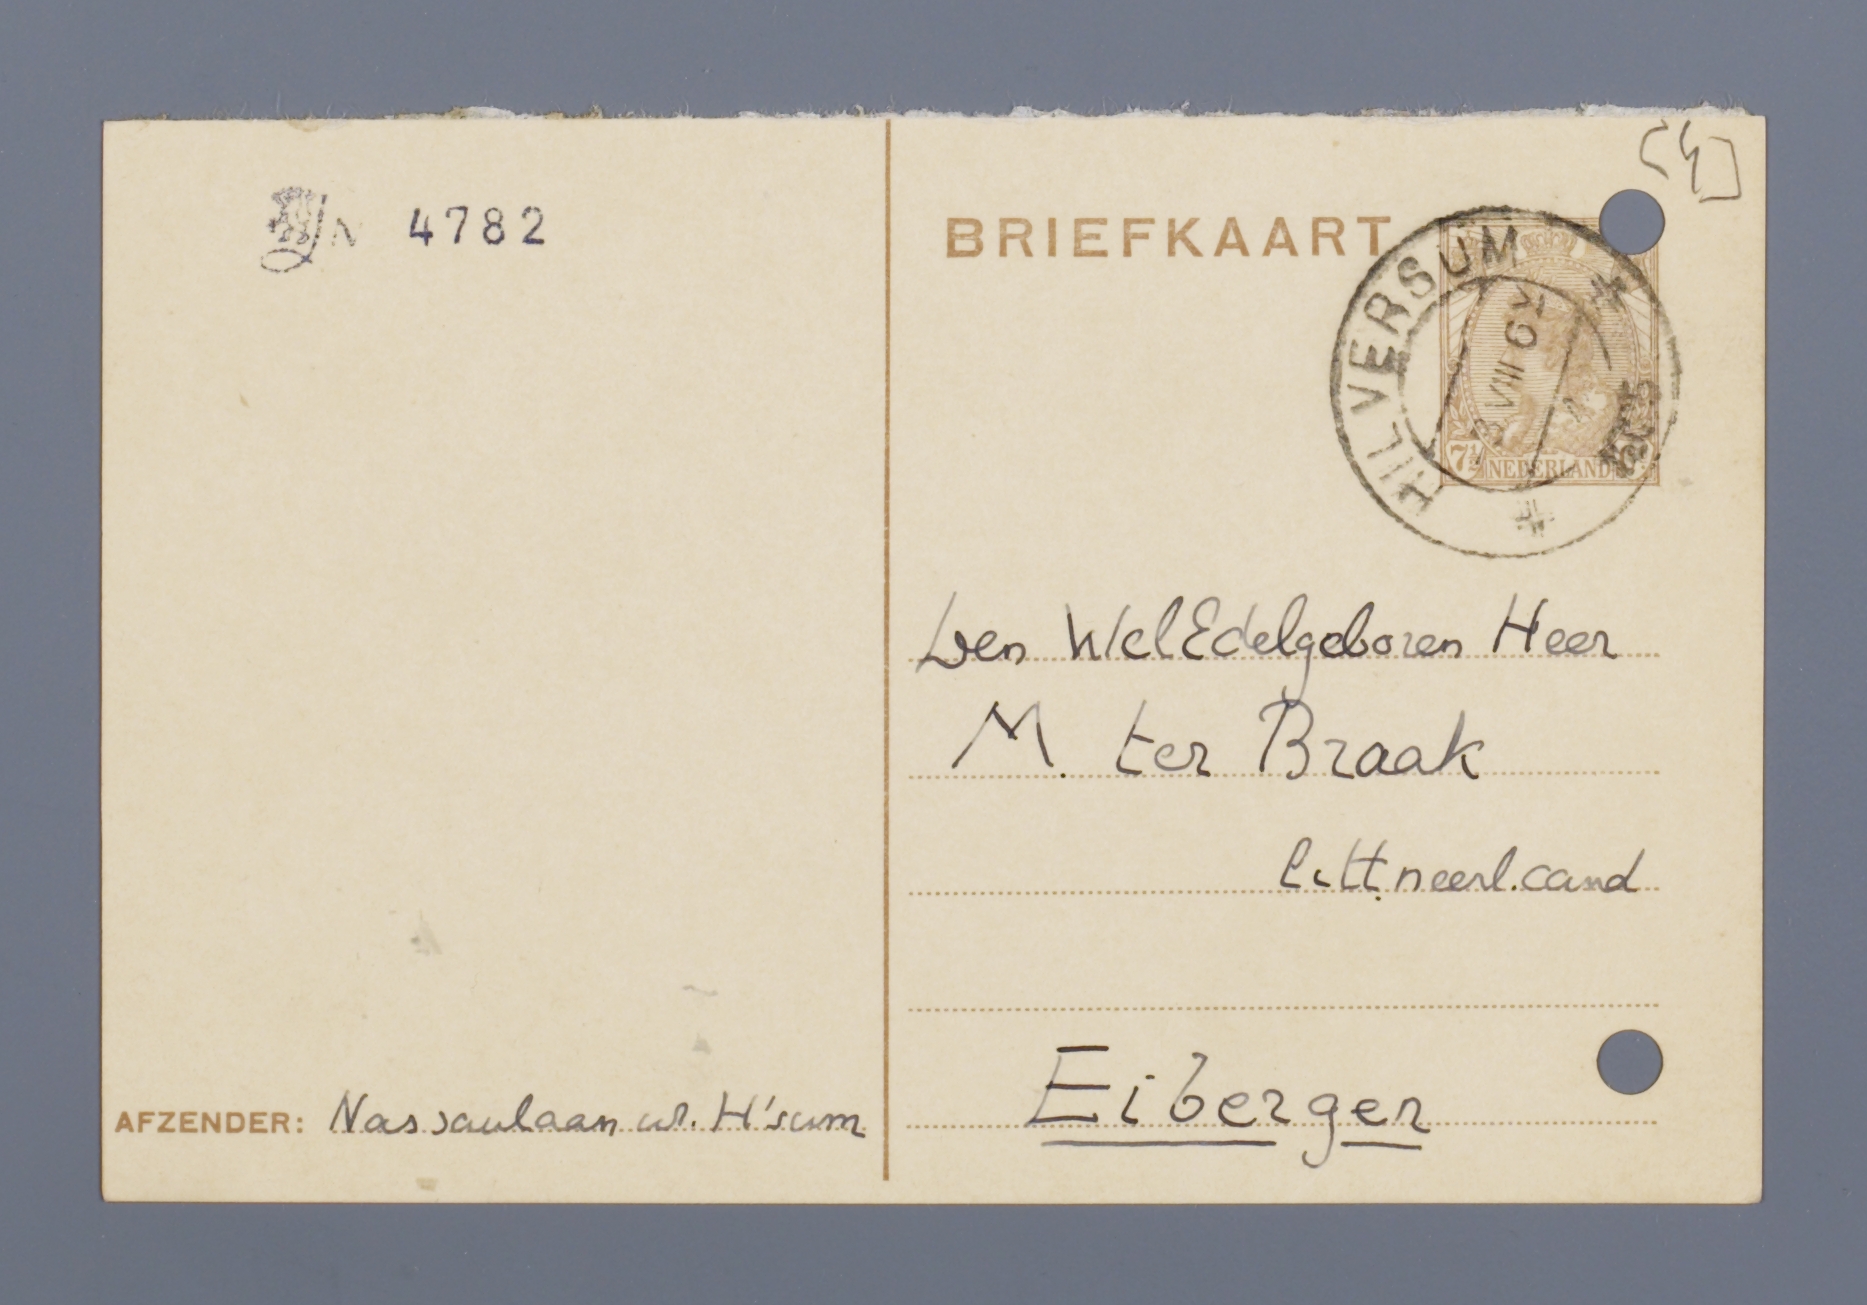 N 4782
BRIEFKAART
HILVERSUM
VIII 6
7½ NEDERLAND
Den WelEdelgeboren Heer
M. ter Braak
Litt. neerl. cand
Eibergen
AFZENDER: Nassaulaan H'sum